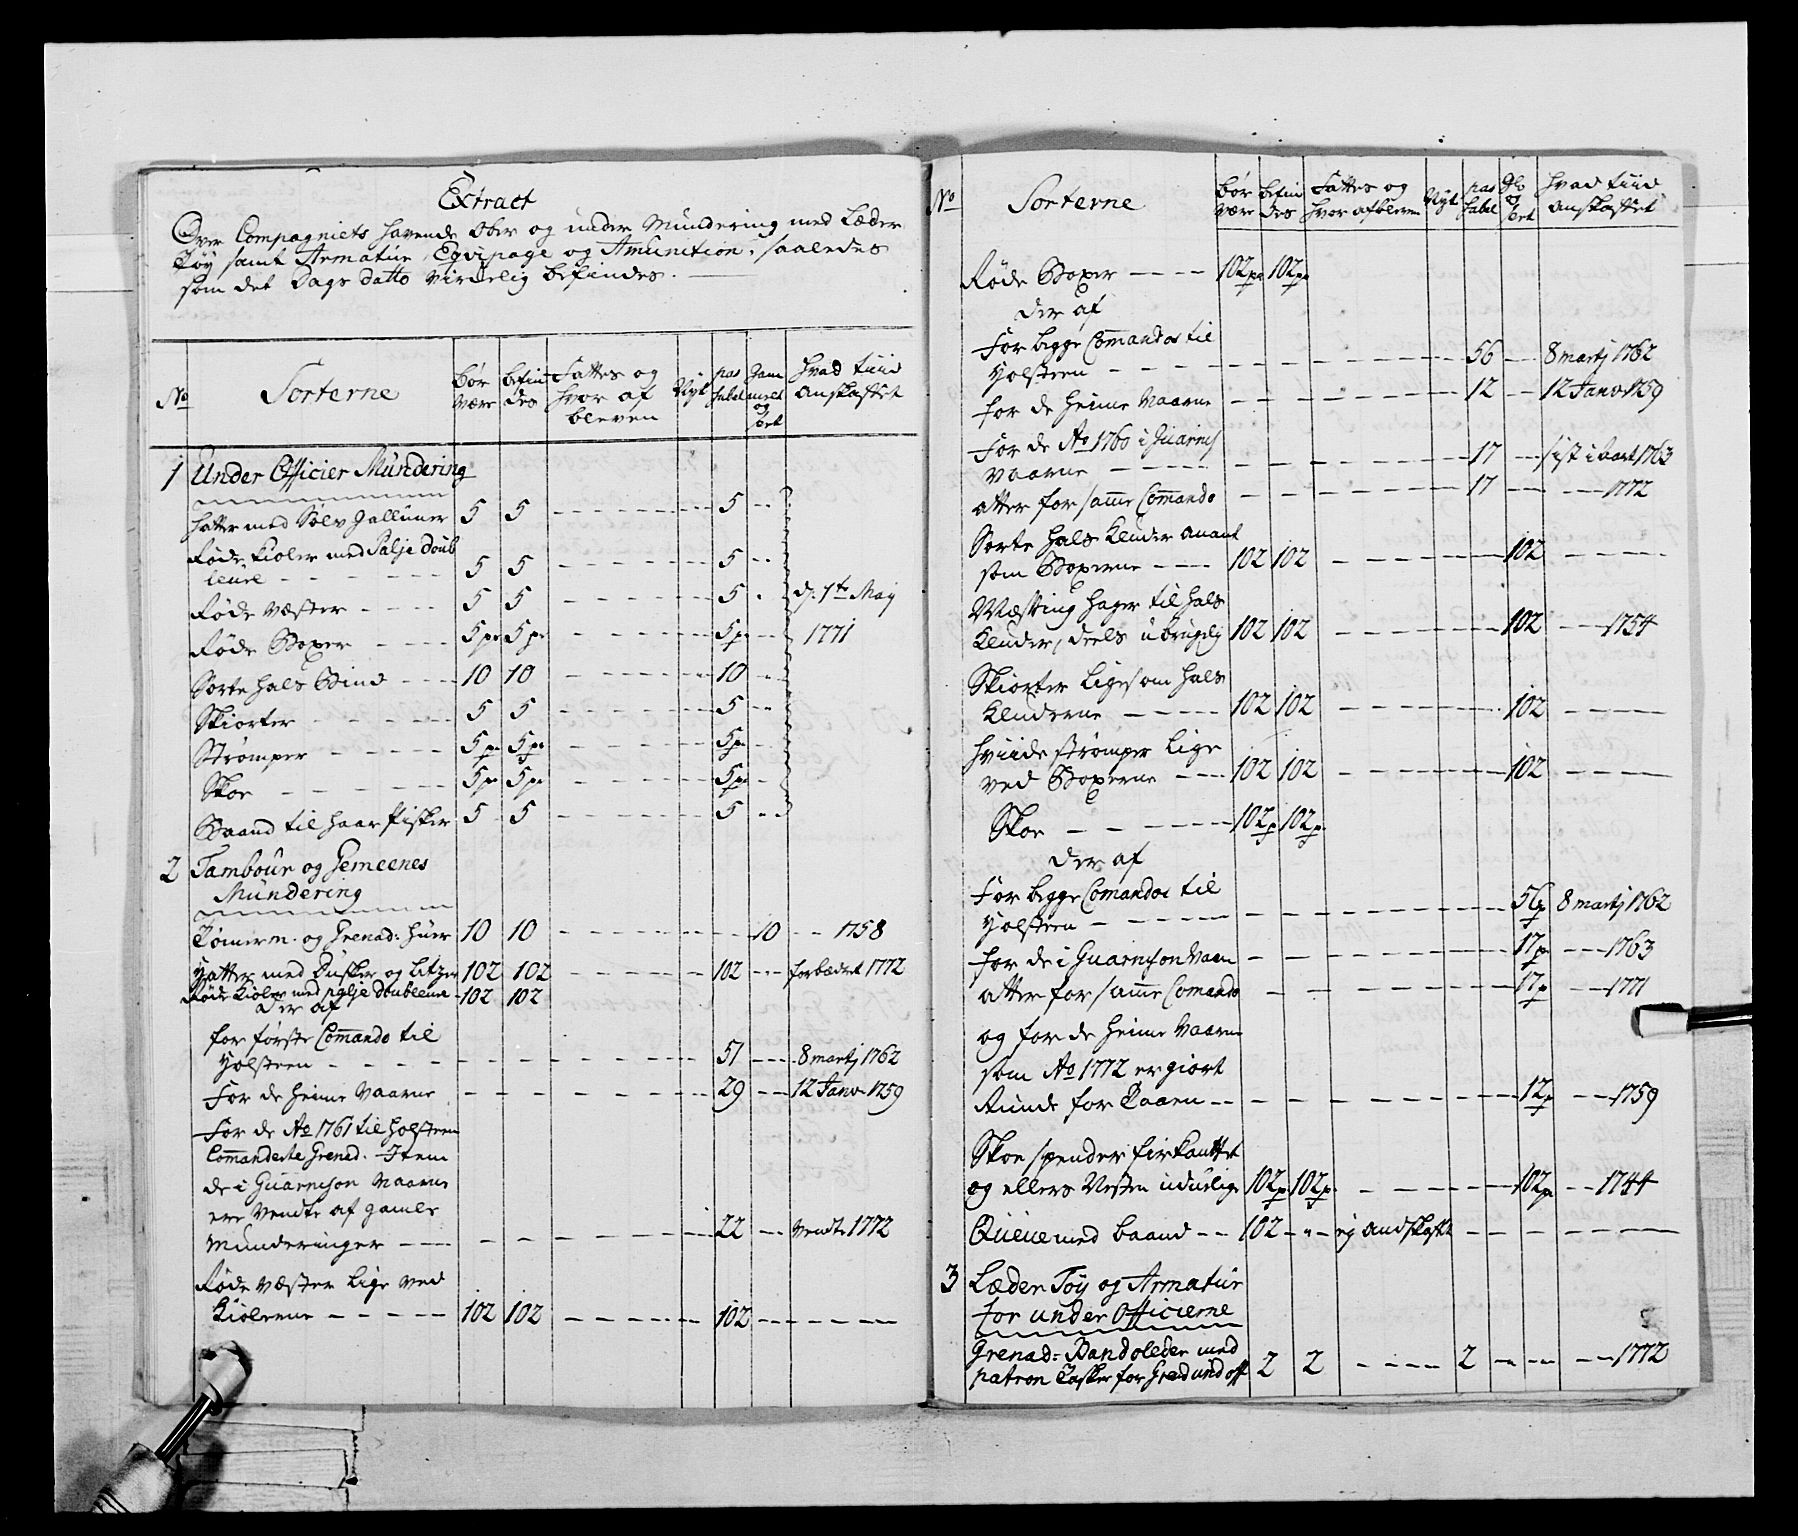 Extract
Over Compagniets havende Ober og under Mundering med Læder
Tøy samt Armatur, Eqvipage og Amunition, saaledes
som det Dags Datto virkelig befindes.
No Sorterne bør være befindes Fattes og hvor af bleven Nyt pas sabel gam melt og ... hvad tiid anskaffet
1 Under Officier Mundering
Hatter med Sølv Galluner 5 5 5
Røde Kioler med Palje Doub
leure 5 5 5
Røde Væster 5 5 5 d: 1te May
Røde Boxer 5 pr 5 pr 5 pr 1771
Sorte Hals Bind 10 10 10
Skiorter 5 5 5
Strømper 5 pr 5 pr 5 pr
Skoe 5 pr 5 pr 5 pr
Baand til Haar Pisker 5 5 5
2 Tambour og Gemeenes
Mundering
Tømerm. og Grenad: Huer 10 10 10 1758
Hatter med Dusker og Litzer 102 102 102 forbædret 1772
Røde Kioler med palje Doubleure 102 102
Der af
for første Commando til
Holsteen 51 8 martj 1762
For de Heime Vaarne 29 12 Janv 1759
For de Ao 1761 til Holsteen
Commanderte Grenad. Item
de i Guarneson Vaarne
ere Vendte af gamle
Munderinger 22 Vendte 1772
Røde Væster Lige ved
Kiolerne 102 102 102
No Sorterne bør være befindes Fattes og hvor afbleven Nyt pas sabel hvad tiid anskaffet
Røde Boxer 102 pr 102 pr
der af
For begge Comandos til
Holsteen 56 8 martj 1762
for de Heime Vaarne 12 12 Janv 1759
For de Ao 1760 i Guarns
Vaarne 17 sist i 1763
atter for samme Commando 17 1772
Sorte Hals Kluder
som Boxerne 102 102 102
Mæssing Hager til Hals
Kluder, deels ubrugelig 102 102 102 1754
Skiorter Ligesom Hals
Kluderne 102 102 102
Hviide Strømper Lige
ved Boxerne 102 102 102
Skoe 102 p 102 p
der af
For begge Comandos til
Holsteen 56 p 8 martj 1762
for de i Guarneson Vaarn 17 p 1763
atter for samme Comando 17 p 1771
og for de Heime Vaarne
som Ao 1772 er giort
Runde for Taaen 12 p 1759
Skoe spender firkanttet
og ellers Næsten uduelige 102 p 102 p 102 p 1744
Queue med baand 102 " ej andskaffet
3 Læder Tøy og Armatur
for under Officierne
Grenad: Bandoleder med
patron Tasker for Grenad und off 2 2 2 1772